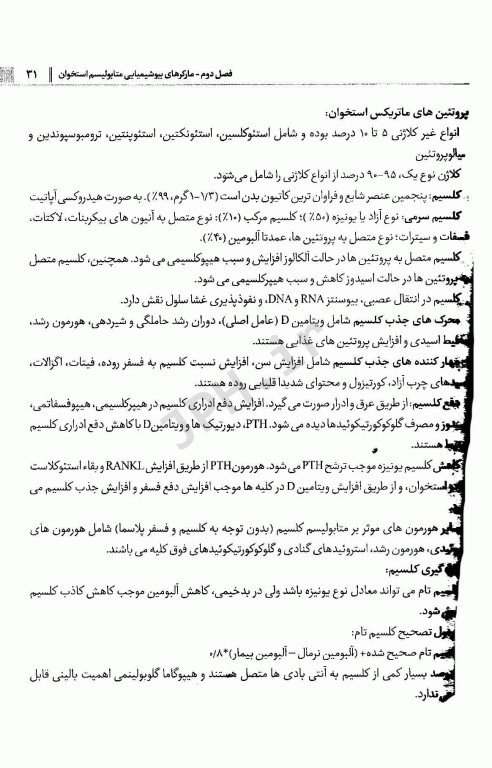 فصل دوم - مارکرهای بیوشیمیایی متابولیسم استخوان ۳۱
پروتئین های ماتریکس استخوان:
انواع غیر کلاژنی ۵ تا ۱۰ درصد بوده و شامل استئوکلسین، استئونکتین، استئوپنتین، ترومبوسپوندین و
سیالوپروتئین
کلاژن نوع یک، ۹۵-۹۰ درصد از انواع کلاژنی را شامل می‌شود.
کلسیم: پنجمین عنصر شایع و فراوان ترین کاتیون بدن است (۱/۳-۱ گرم، ۹۹٪). به صورت هیدروکسی آپاتیت
کلسیم سرمی: نوع آزاد یا یونیزه (۵۰٪)؛ کلسیم مرکب (۱۰٪): نوع متصل به آنیون های بیکربنات، لاکتات،
فسفات و سیترات؛ نوع متصل به پروتئین ها، عمدتا آلبومین (۴۰٪).
کلسیم متصل به پروتئین ها در حالت آلکالوز افزایش و سبب هیپوکلسیمی می شود. همچنین، کلسیم متصل
پروتئین ها در حالت اسیدوز کاهش و سبب هیپرکلسیمی می شود.
کلسیم در انتقال عصبی، بیوسنتز RNA و DNA، و نفوذپذیری غشا سلول نقش دارد.
محرک های جذب کلسیم شامل ویتامین D (عامل اصلی)، دوران رشد حاملگی و شیردهی، هورمون رشد،
اسیدی و افزایش پروتئین های غذایی هستند.
کننده های جذب کلسیم شامل افزایش سن، افزایش نسبت کلسیم به فسفر روده، فیتات، اگزالات،
های چرب آزاد، کورتیزول و محتوای شدیدا قلیایی روده هستند.
دفع کلسیم: از طریق عرق و ادرار صورت می گیرد. افزایش دفع ادراری کلسیم در هیپرکلسیمی، هیپوفسفاتمی،
و مصرف گلوکوکورتیکوئیدها دیده می شود. PTH، دیورتیک ها و ویتامین D با کاهش دفع ادراری کلسیم
هستند.
کاهش کلسیم یونیزه موجب ترشح PTH می شود. هورمون PTH از طریق افزایش RANKL و بقاء استئوکلاست
استخوان، و از طریق افزایش ویتامین D در کلیه ها موجب افزایش دفع فسفر و افزایش جذب کلسیم می
سایر هورمون های موثر بر متابولیسم کلسیم (بدون توجه به کلسیم و فسفر پلاسما) شامل هورمون های
هورمون رشد، استروئیدهای گنادی و گلوکوکورتیکوئیدهای فوق کلیه می باشند.
گیری کلسیم:
تام می تواند معادل نوع یونیزه باشد ولی در بدخیمی، کاهش آلبومین موجب کاهش کاذب کلسیم
شود.
تصحیح کلسیم تام:
تام صحیح شده+ (آلبومین نرمال – آلبومین بیمار)*۰/۸
بسیار کمی از کلسیم به آنتی بادی ها متصل هستند و هیپوگاما گلوبولینمی اهمیت بالینی قابل
ندارد.